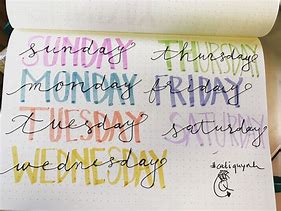 SUNDAY
sunday
MONDAY
monday
TUESDAY
tuesday
WEDNESDAY
wednesday
THURSDAY
thursday
FRIDAY
friday
SATURDAY
saturday
#catiquynh